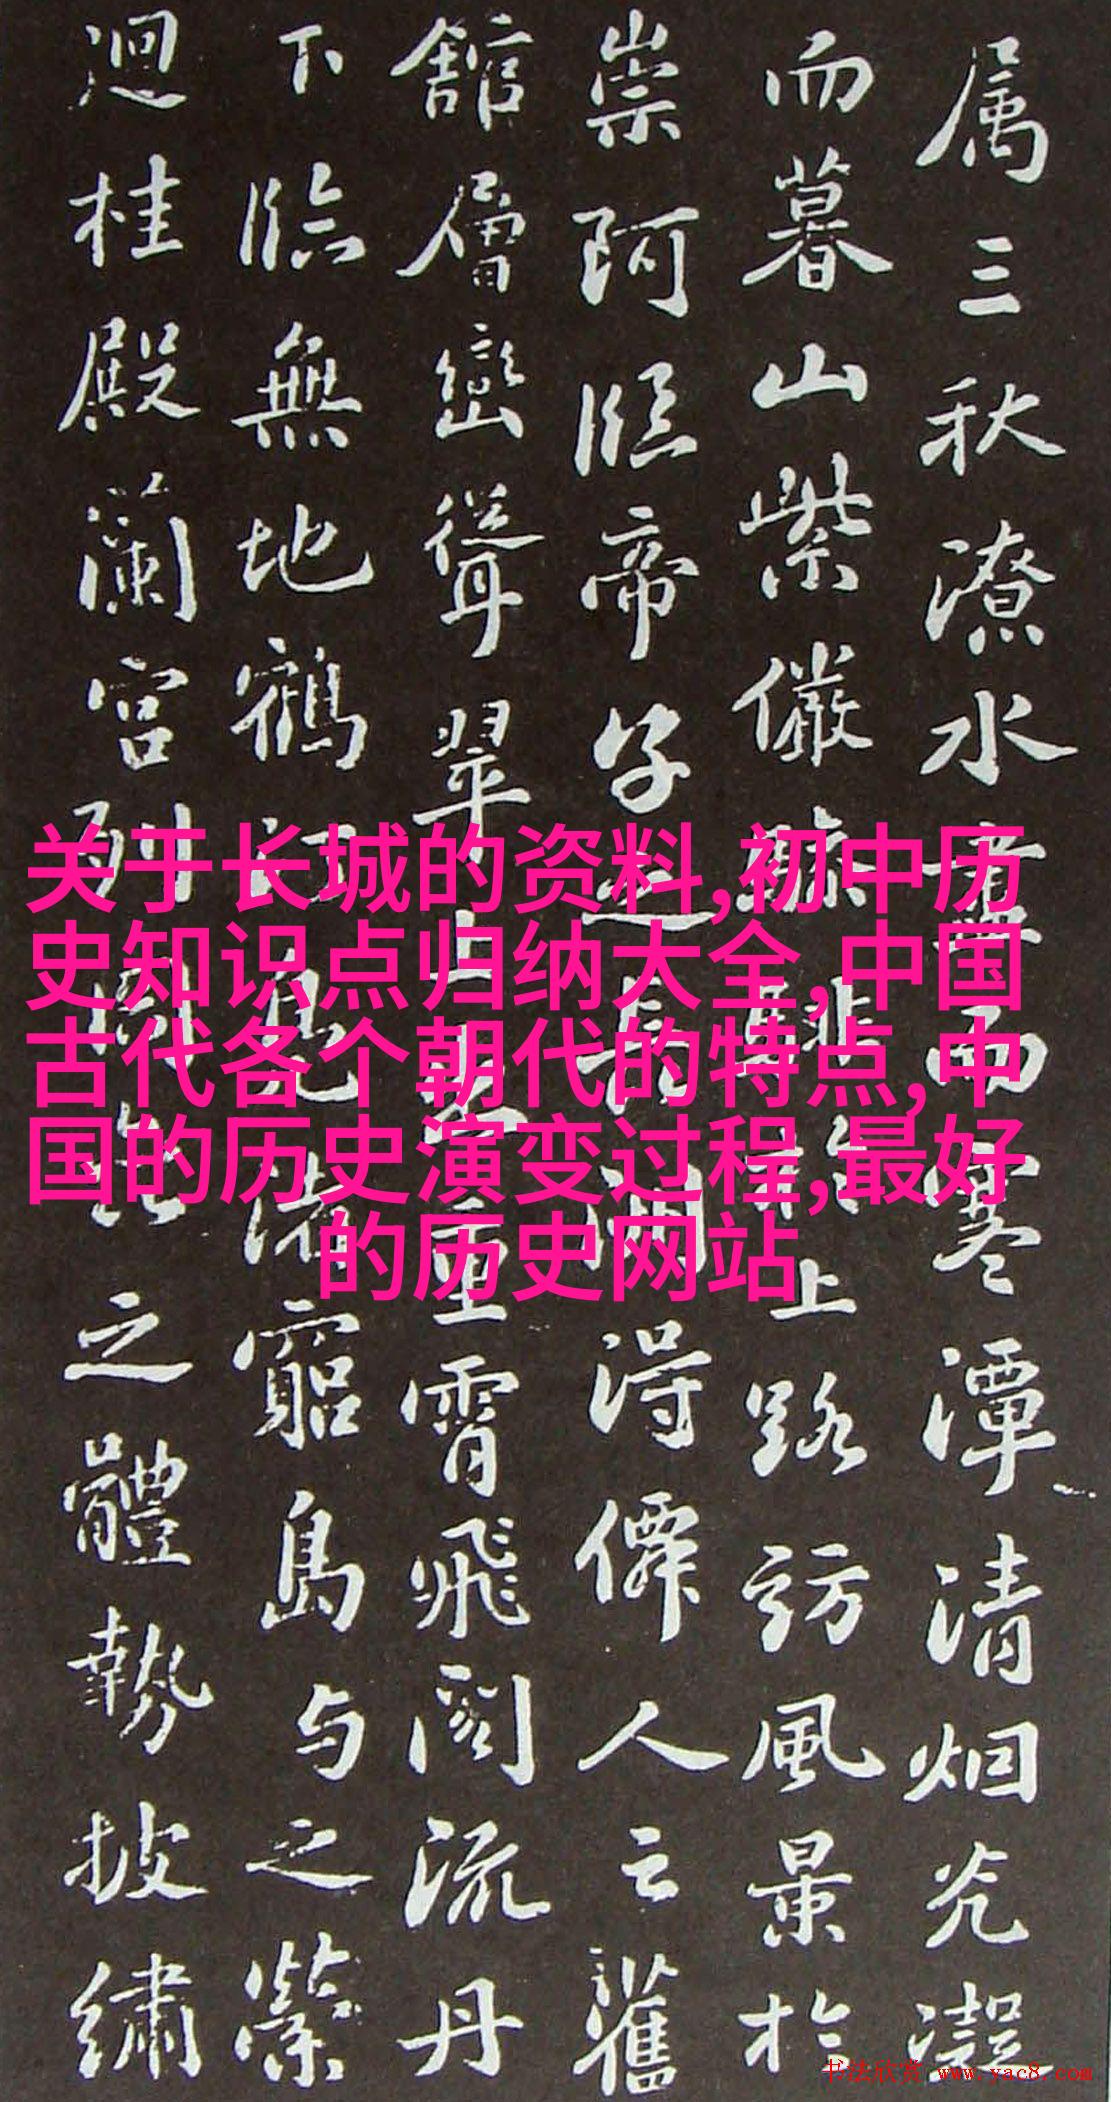 属三秋潦水盡而寒潭清烟光凝
而暮山紫儼驂騑於上路訪風景於
崇阿臨帝子之長洲得僊人之舊
館層巒聳翠上出重霄飛閣流丹
下臨無地鶴汀鳧渚窮島与之縈
迴桂殿蘭宮列岡巒之體勢披繡
关于长城的资料,初中历
史知识点归纳大全,中国
古代各个朝代的特点,中
国的历史演变过程,最好
的历史网站
书法欣赏 www.yac8.com